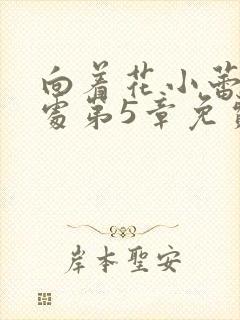 向着花小蕾
处第5章免费
岸本聖安